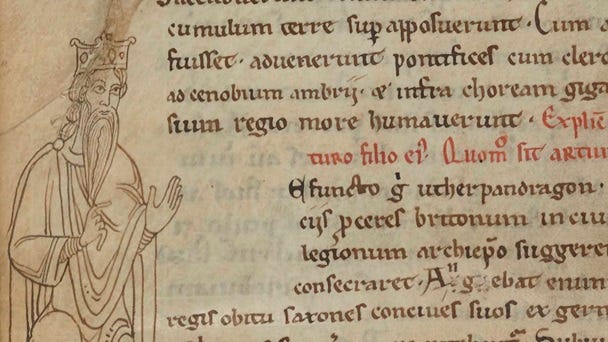 cumulum terre sup apposuerunt. Cum a
fuisset. advenerunt pontifices cum clero
ad cenobium ambrii. & infra choream giga
sium regio more humaverunt. Explic
turo filio ei'. Quomo sit artur
Efuncto g utherpandragon.
ciis pceres britonum in ciu
legionum archiepo suggere
consecraret. An g ebat enim
regis obitu saxones concives suos ex ger